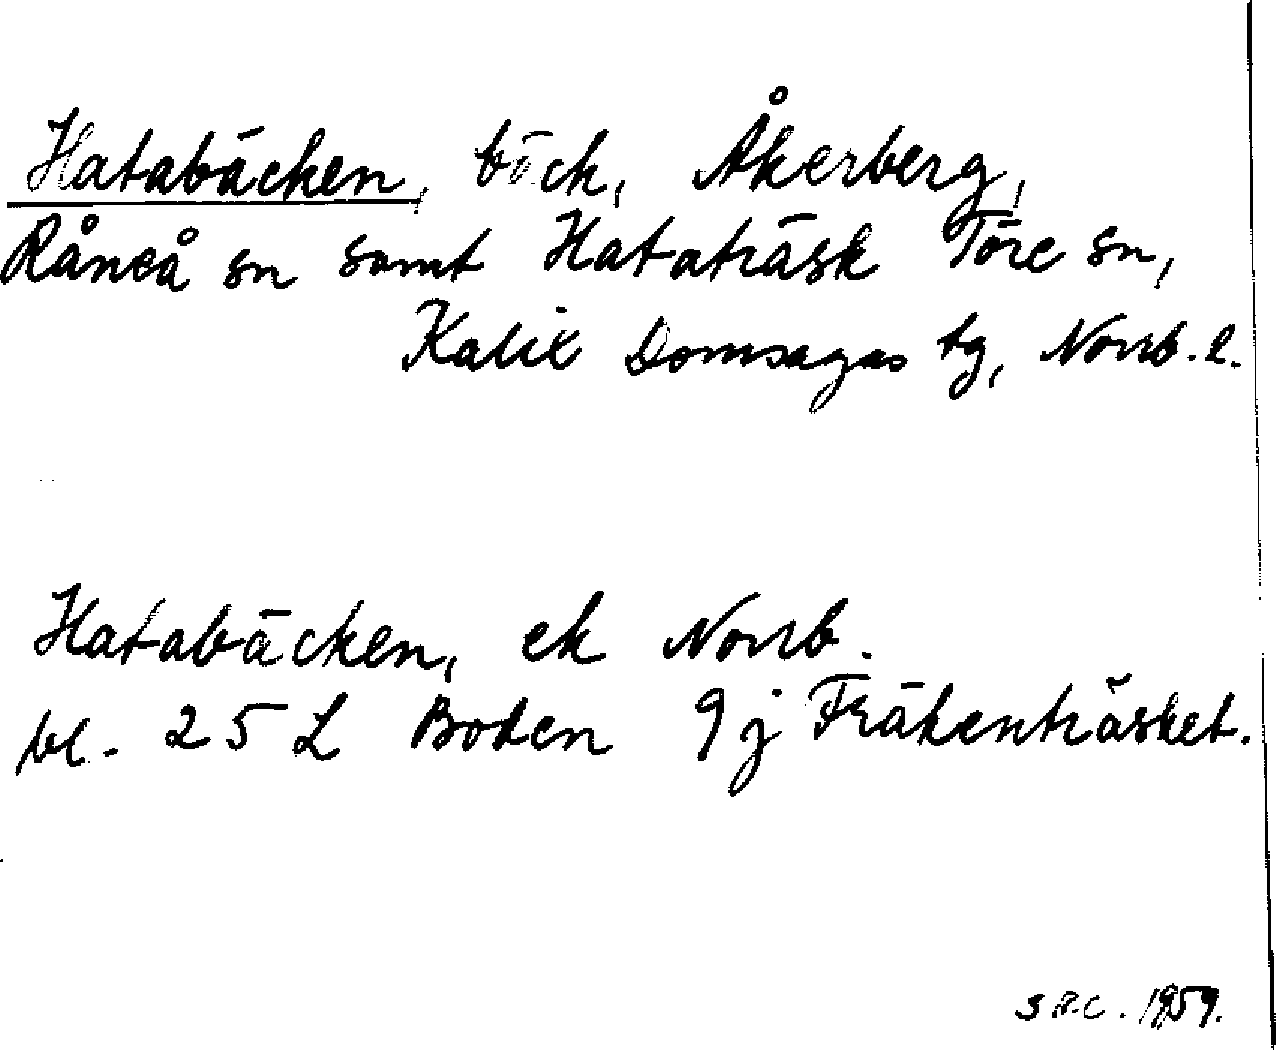 Hatabäcken, bäck, Åkerberg,
Råneå sn samt Hataträsk Töre sn,
Kalix Domsagas tg, Norrb. l.
Hatabäcken, ek Norrb.
bl. 25 L Boden 9 j Fräkenträsket.
S.R.C. 1959.